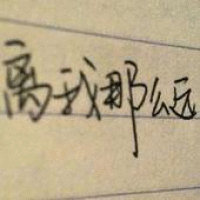 离我那么远